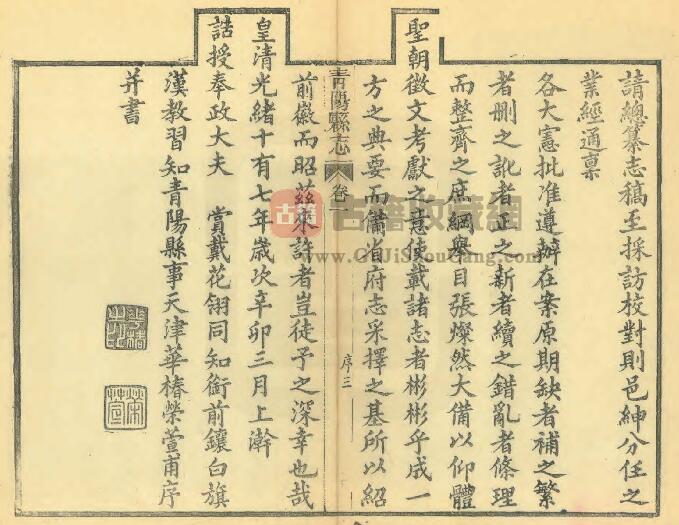 請總纂志稿至採訪校對則邑紳分任之
業經通禀
各大憲批准遵辦在案原期缺者補之繁
者刪之訛者正之新者續之錯亂者條理
而整齊之庶綱舉目張燦然大備以仰體
聖朝徵文考獻之意使載諸志者彬彬乎成一
方之典要而備省府志采擇之基所以紹
青陽縣志
卷一
序三
前徽而昭茲來許者豈徒予之深幸也哉
皇清光緒十有七年歲次辛卯三月上澣
誥授奉政大夫 賞戴花翎同知銜前鑲白旗
漢教習知青陽縣事天津華椿榮萱甫序
并書
古籍
古籍收藏網
www.GuJiShouCang.com